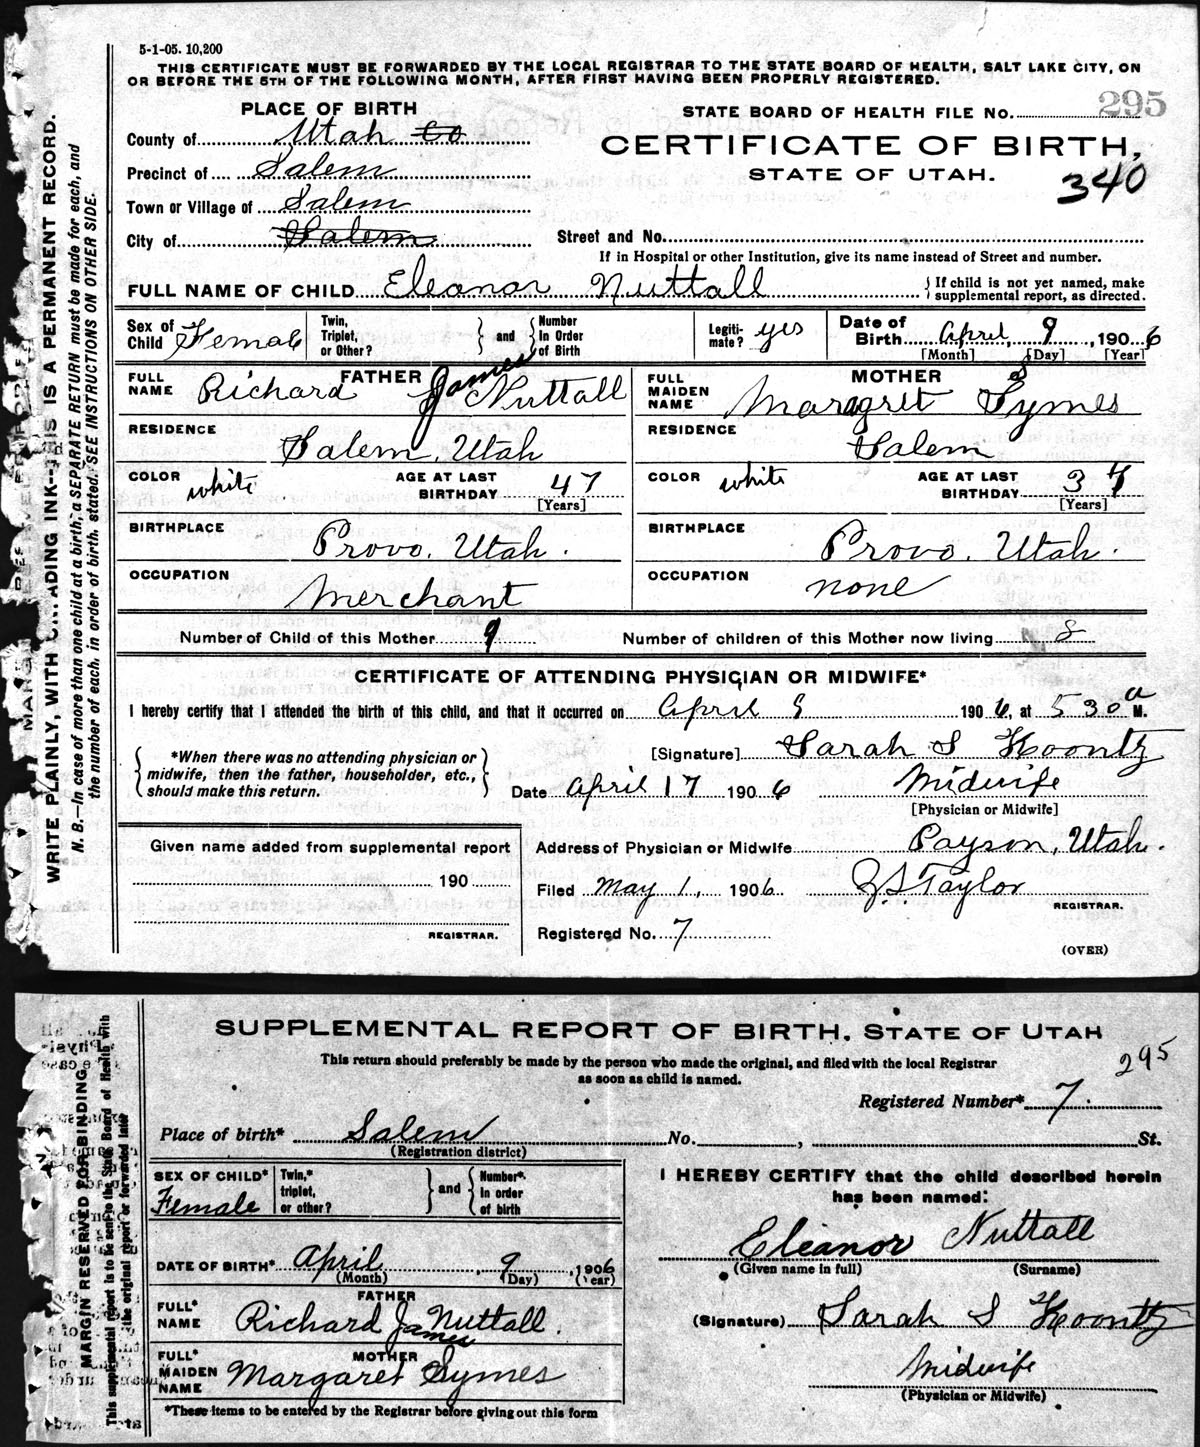 5-1-05. 10,200
THIS CERTIFICATE MUST BE FORWARDED BY THE LOCAL REGISTRAR TO THE STATE BOARD OF HEALTH, SALT LAKE CITY, ON
OR BEFORE THE 5TH OF THE FOLLOWING MONTH, AFTER FIRST HAVING BEEN PROPERLY REGISTERED.
PLACE OF BIRTH
STATE BOARD OF HEALTH FILE No. 295
County of Utah Co
CERTIFICATE OF BIRTH,
Precinct of Salem
STATE OF UTAH.
340
Town or Village of Salem
City of Salem
Street and No.
If in Hospital or other Institution, give its name instead of Street and number.
FULL NAME OF CHILD Eleanor Nuttall
{If child is not yet named, make
supplemental report, as directed.
Sex of Child Female
Twin, Triplet, or Other?
} and {
Number In Order of Birth
Legiti-mate? yes
Date of Birth April 9, 1906
[Month] [Day] [Year]
FATHER
FULL NAME Richard James Nuttall
MOTHER
FULL MAIDEN NAME Margret Symes
RESIDENCE Salem, Utah
RESIDENCE Salem
COLOR white
AGE AT LAST BIRTHDAY 47
[Years]
COLOR white
AGE AT LAST BIRTHDAY 37
[Years]
BIRTHPLACE Provo, Utah.
BIRTHPLACE Provo, Utah.
OCCUPATION Merchant
OCCUPATION none
Number of Child of this Mother 9
Number of children of this Mother now living 8
CERTIFICATE OF ATTENDING PHYSICIAN OR MIDWIFE*
I hereby certify that I attended the birth of this child, and that it occurred on April 9 1906, at 530 a M.
*When there was no attending physician or
midwife, then the father, householder, etc.,
should make this return.
[Signature] Sarah S Koontz
Date April 17 1906
Midwife
[Physician or Midwife]
Given name added from supplemental report
190
REGISTRAR.
Address of Physician or Midwife Payson, Utah.
Filed May 1, 1906
Z.S. Taylor
REGISTRAR.
Registered No. 7
(OVER)
WRITE PLAINLY, WITH UNFADING INK--THIS IS A PERMANENT RECORD.
N. B.—In case of more than one child at a birth, a SEPARATE RETURN must be made for each, and
the number of each, in order of birth, stated. SEE INSTRUCTIONS ON OTHER SIDE.
SUPPLEMENTAL REPORT OF BIRTH. STATE OF UTAH
This return should preferably be made by the person who made the original, and filed with the local Registrar
as soon as child is named.
295
Registered Number* 7.
Place of birth* Salem No. , St.
(Registration district)
SEX OF CHILD* Female
Twin,* triplet, or other?
} and {
Number* In order of birth
I HEREBY CERTIFY that the child described herein
has been named:
Eleanor Nuttall
(Given name in full) (Surname)
DATE OF BIRTH* April 9, 1906
(Month) (Day) (Year)
FATHER
FULL* NAME Richard James Nuttall.
(Signature) Sarah S Koontz
MOTHER
FULL* MAIDEN NAME Margaret Symes
Midwife
(Physician or Midwife)
*These items to be entered by the Registrar before giving out this form
MARGIN RESERVED FOR BINDING
This supplemental report is to be sent to the State Board of Health with
the original report or forwarded later